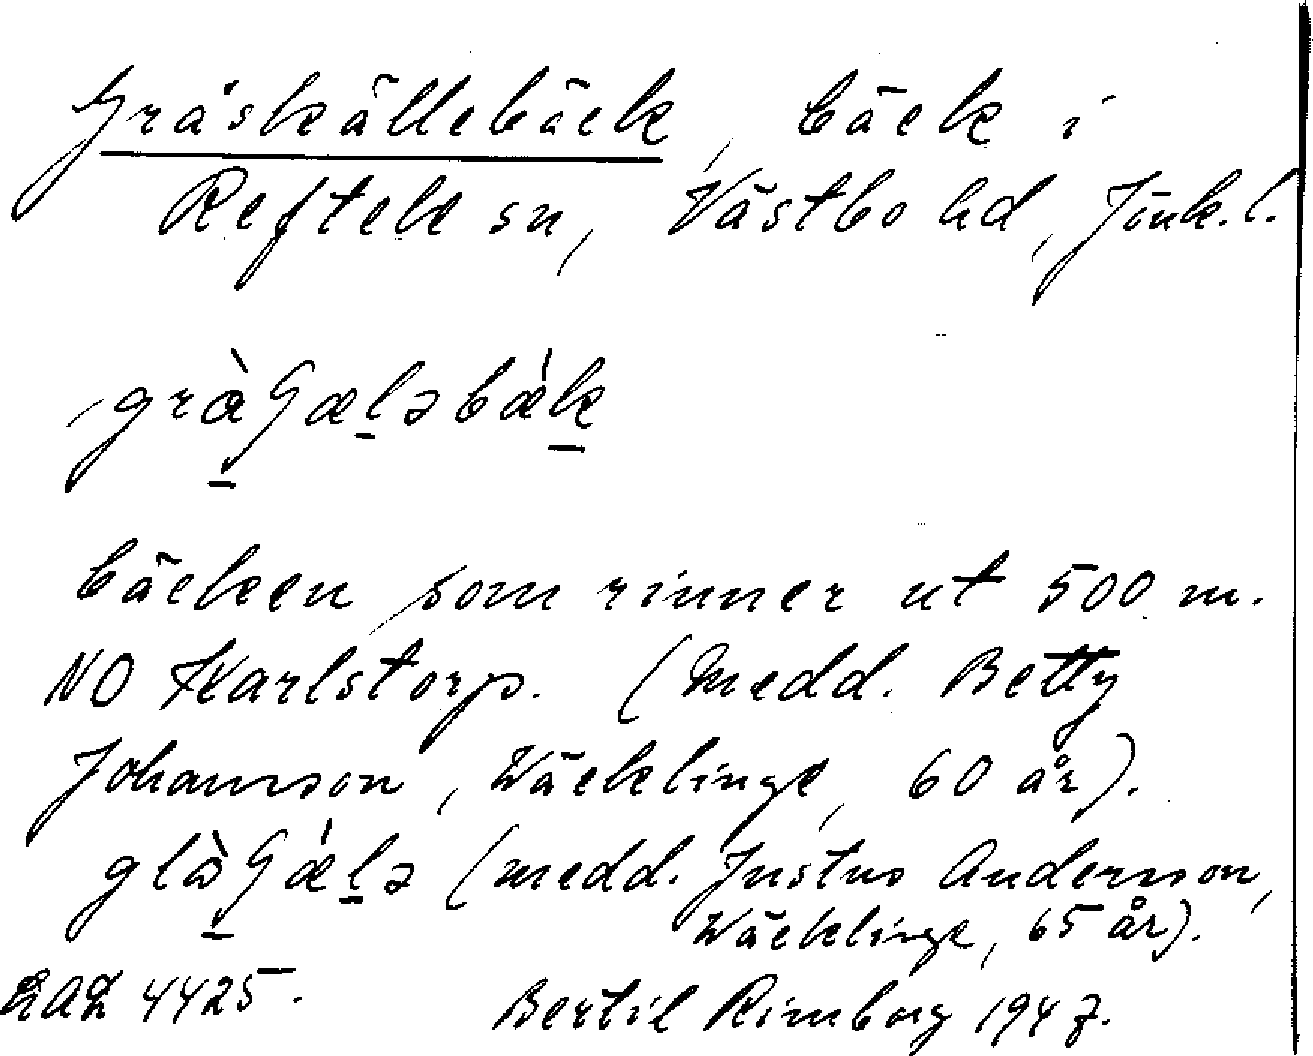 Gråskällebäck, bäck i
Reftele sn, Västbo hd, Jönk. l.
bäcken som rinner ut 500 m.
NO Karlstorp. (Medd. Betty
Johanson, Wäcklinge, 60 år).
(medd. Justus Anderson,
Wäcklinge, 65 år).
4425.
Bertil Rimborg 1947.